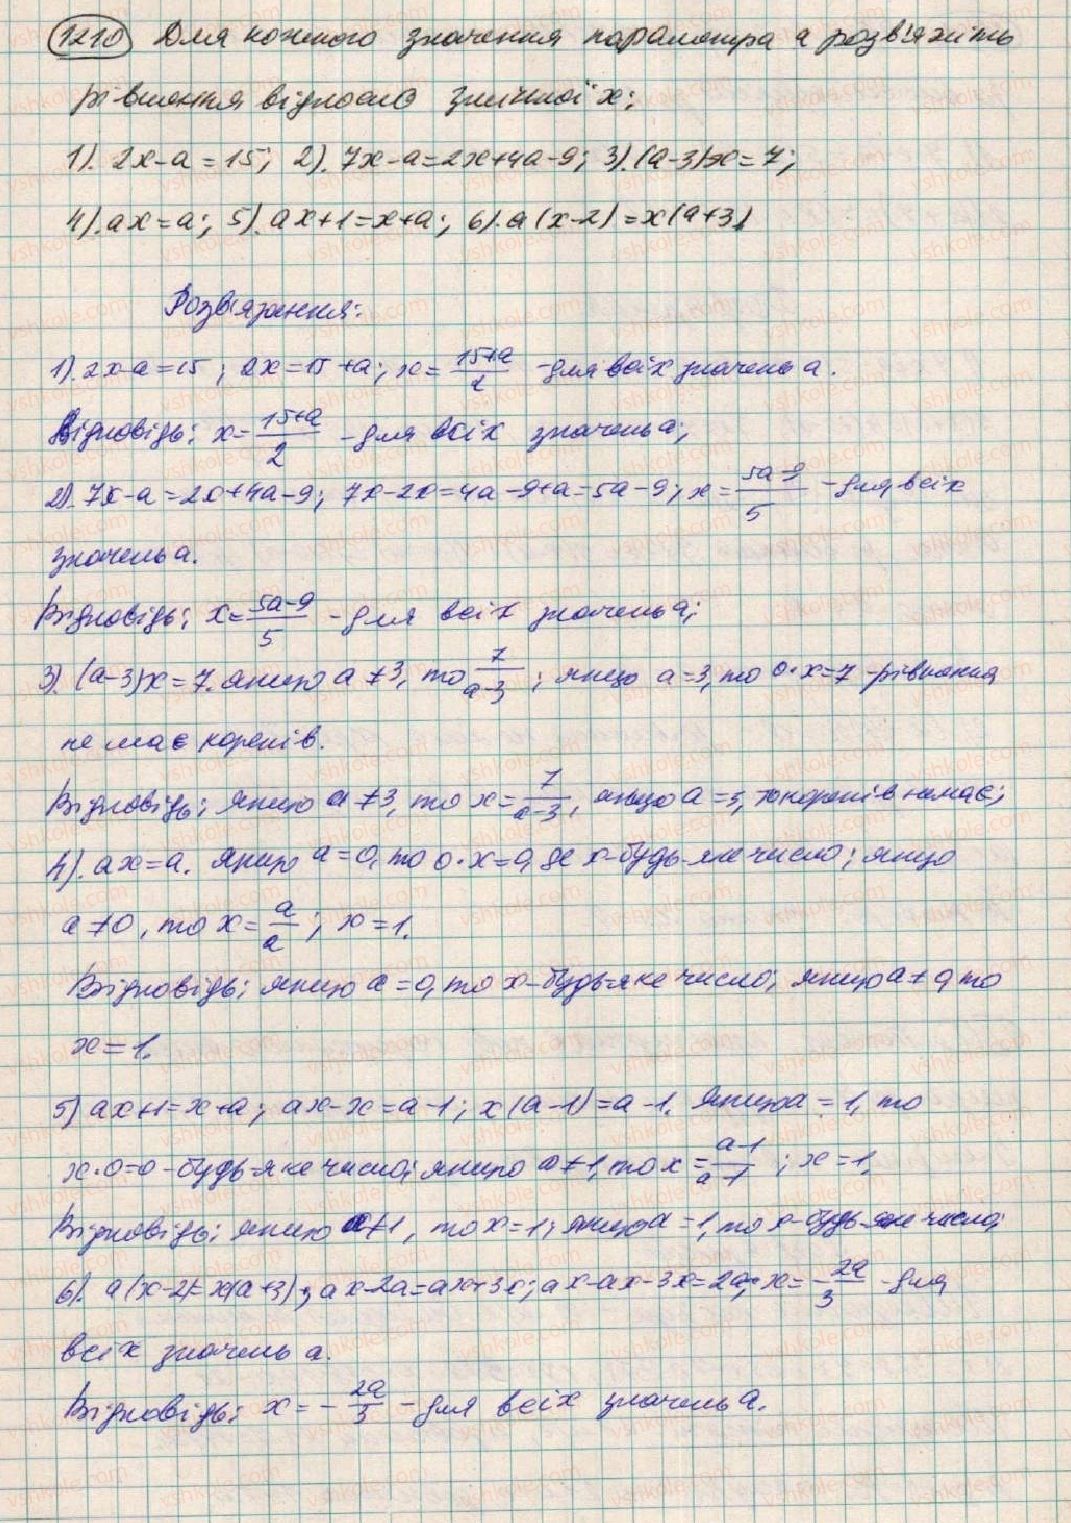 1210 Для кожного значення параметра а розв'яжіть
рівняння відносно змінної х:
1). 2х-а=15; 2). 7х-а=2х+4а-9; 3). (а-3)х=7;
4). ах=а; 5). ах+1=х+а; 6). а(х-2)=х(а+3).
Розв'язання:
1). 2х-а=15; 2х=15+а; х=\frac{15+а}{2} - для всіх значень а.
Відповідь: х=\frac{15+а}{2} - для всіх значень а;
2). 7х-а=2х+4а-9; 7х-2х=4а-9+а=5а-9; х=\frac{5а-9}{5} - для всіх
значень а.
Відповідь: х=\frac{5а-9}{5} - для всіх значень а;
3). (а-3)х=7. якщо а≠3, то \frac{7}{а-3}; якщо а=3, то 0·х=7 - рівняння
не має коренів.
Відповідь: якщо а≠3, то х=\frac{7}{а-3}, якщо а=3, то коренів немає;
4). ах=а. якщо а=0, то 0·х=0, де х-будь-яке число; якщо
а≠0, то х=\frac{а}{а}; х=1.
Відповідь: якщо а=0, то х-будь-яке число; якщо а≠0, то
х=1.
5) ах+1=х+а; ах-х=а-1; х(а-1)=а-1. Якщо а=1, то
х·0=0 - будь-яке число; якщо а≠1, то х=\frac{а-1}{а-1}; х=1.
Відповідь: якщо а≠1, то х=1; якщо а=1, то х-будь-яке число;
6). а(х-2)=х(а+3); ах-2а=ах+3х; ах-ах-3х=2а; х=-\frac{2а}{3} - для
всіх значень а.
Відповідь: х=-\frac{2а}{3} - для всіх значень а.